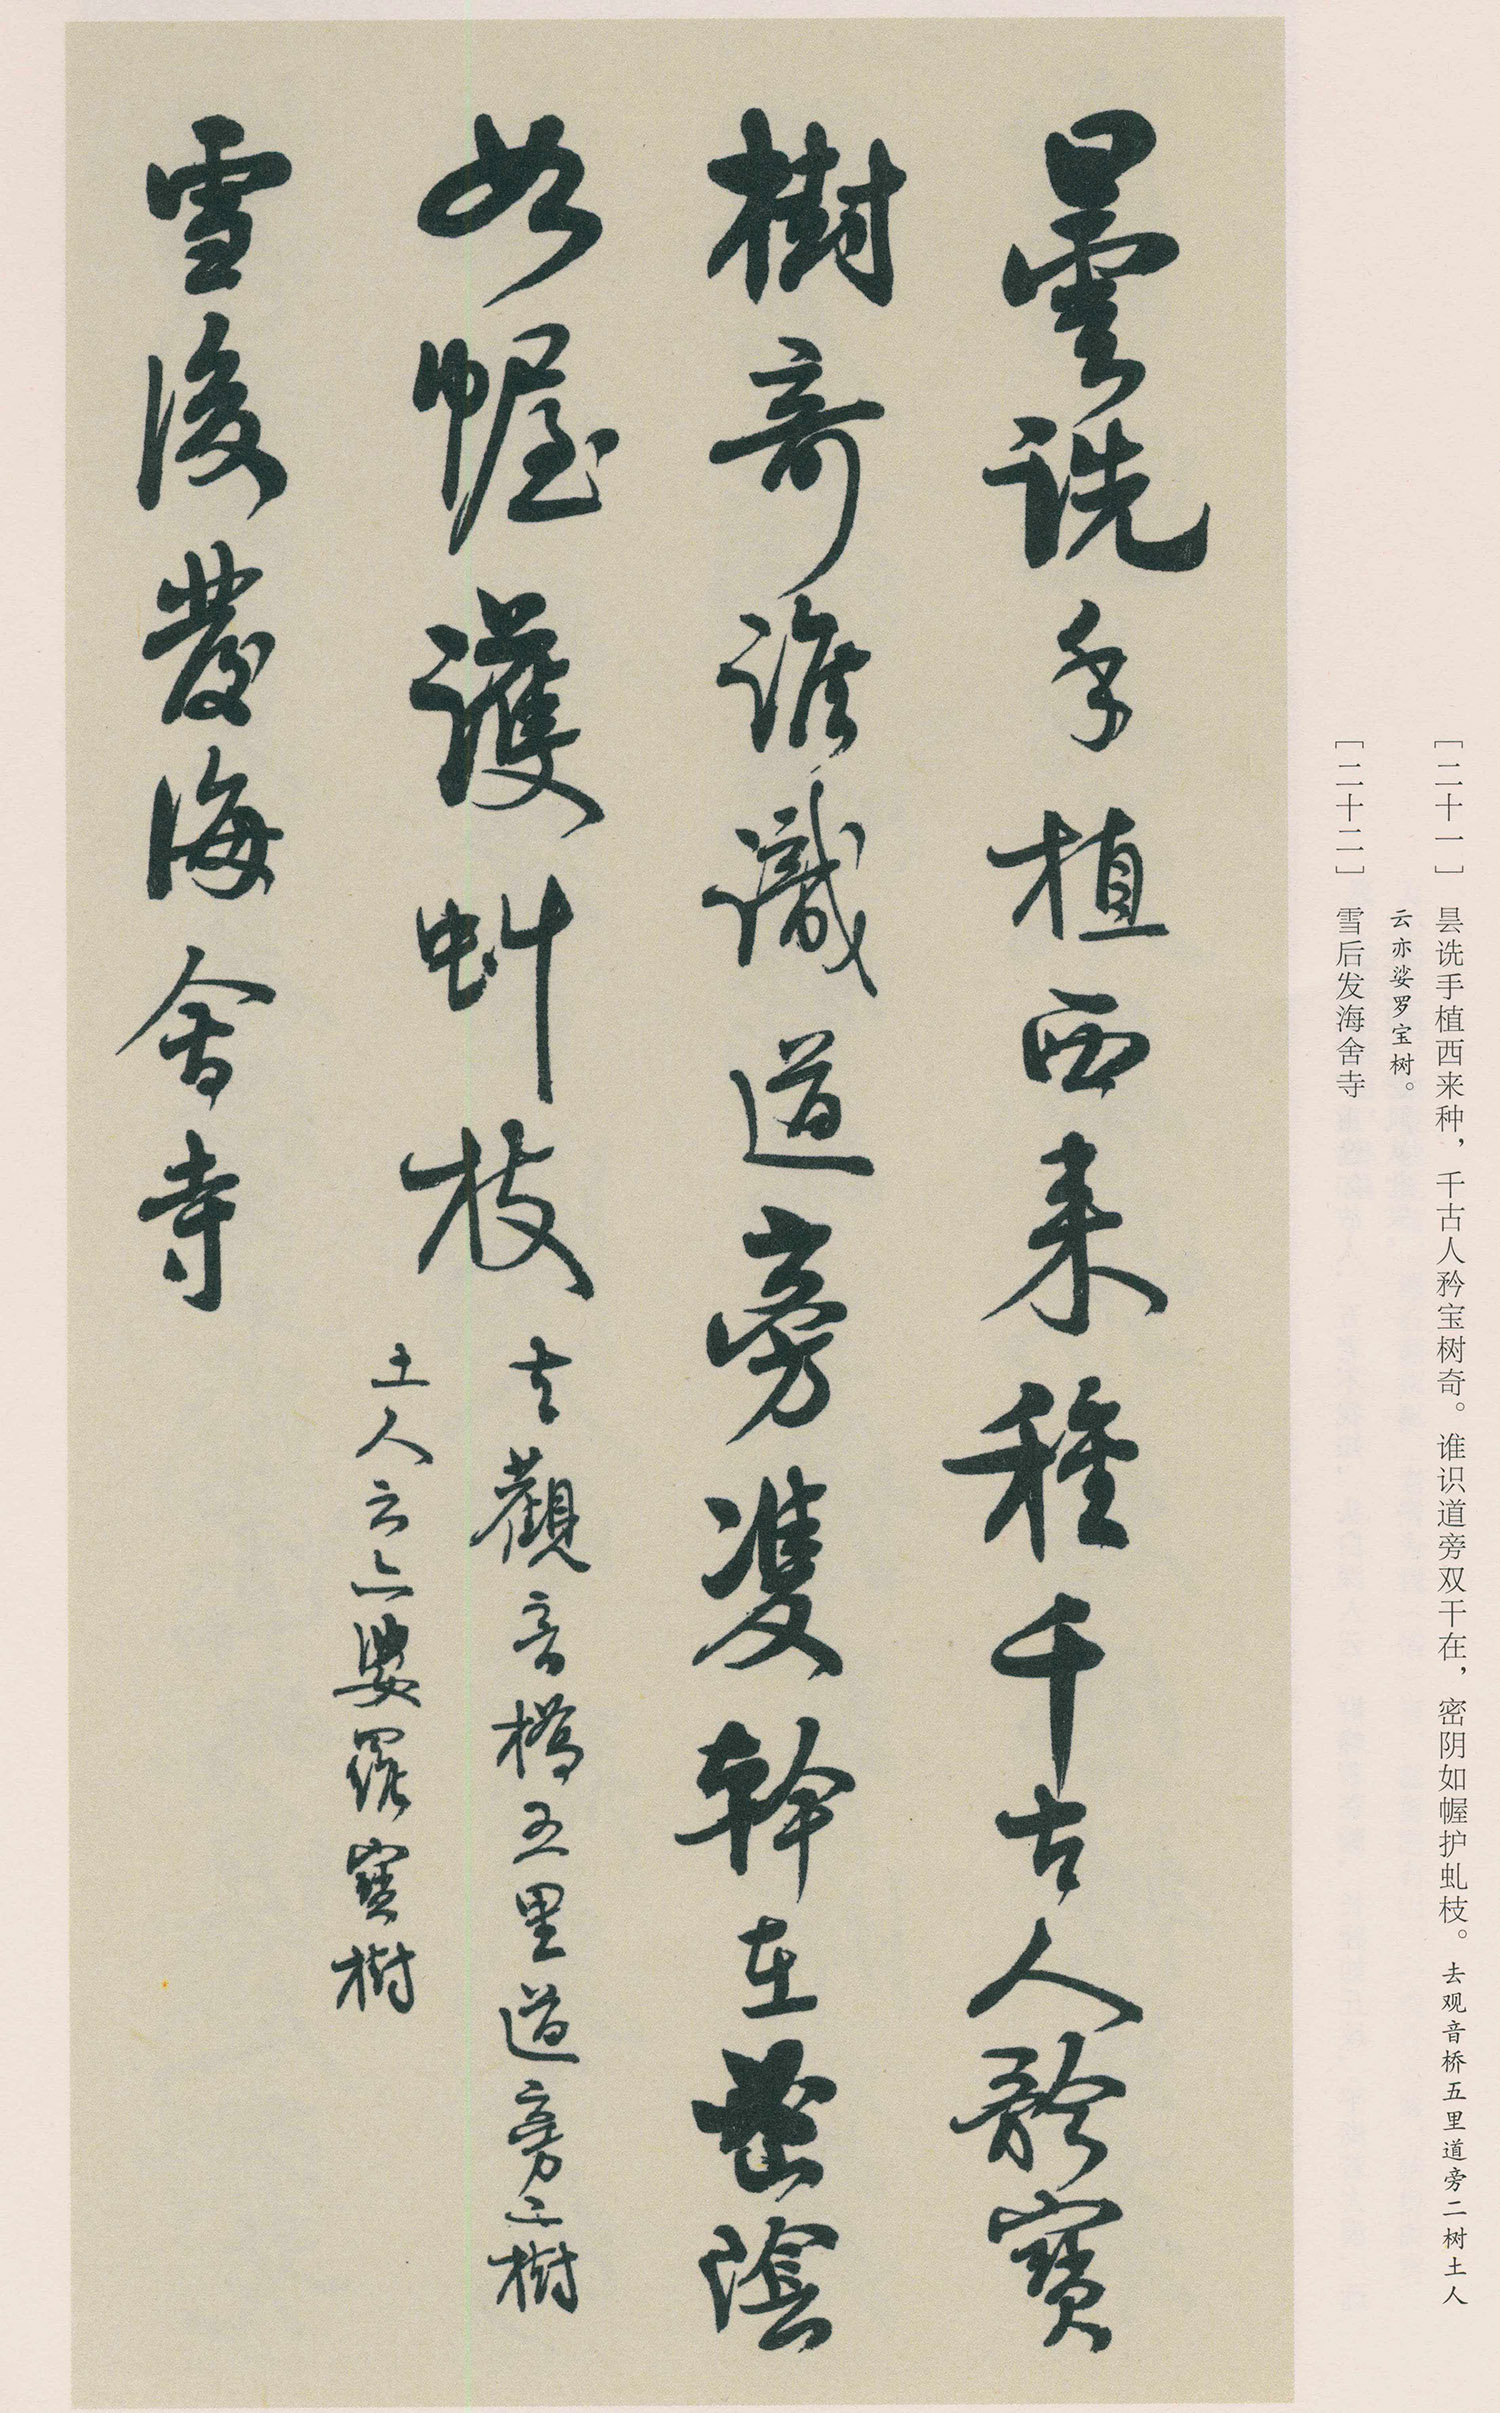 [二十一] 昙诜手植西来种，千古人矜宝树奇。谁识道旁双干在，密阴如幄护虬枝。去观音桥五里道旁二树土人
云亦娑罗宝树。
[二十二] 雪后发海舍寺
曇詵手植西来種千古人矜寶
樹奇誰識道旁雙幹在密陰
如幄護虯枝 去觀音橋五里道旁二樹
土人云亦娑羅寶樹
雪後發海舍寺